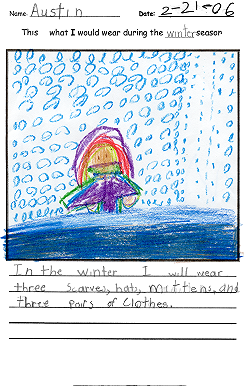 Name Austin Date: 2-21-06
This what I would wear during the winter season
In the winter I will wear
three scarves, hats, mittens, and
three pairs of clothes.